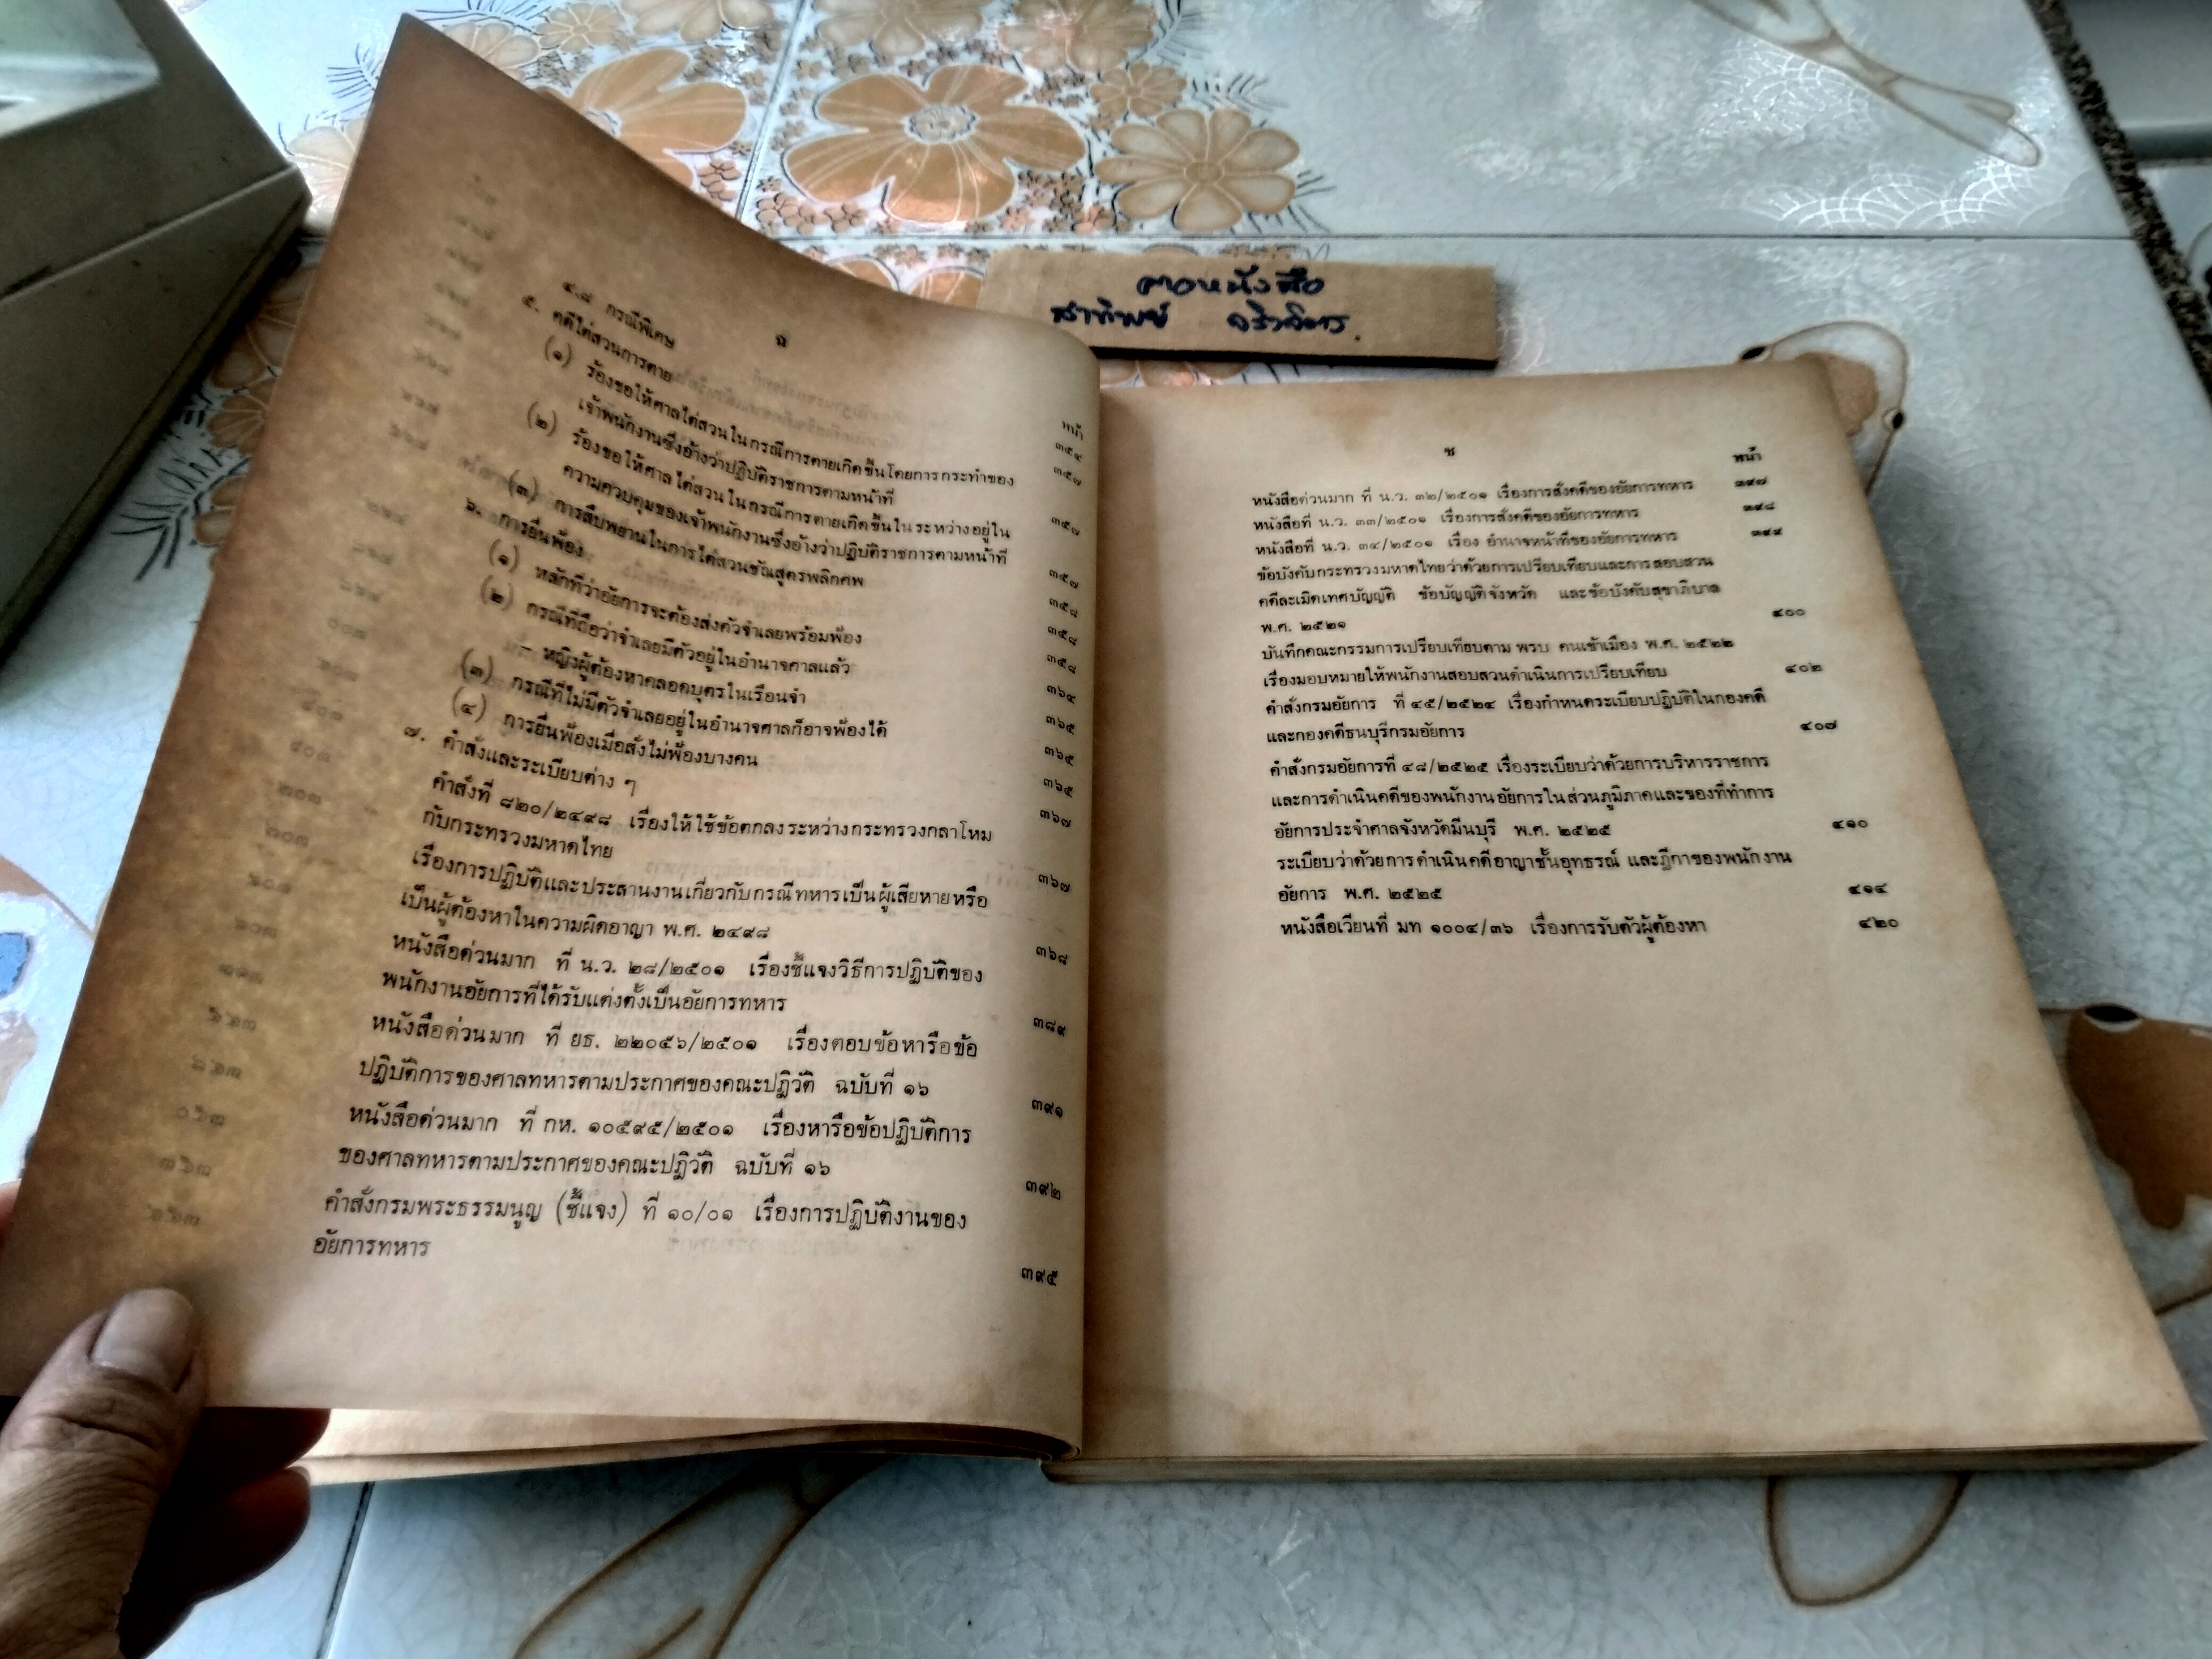 ฉ
หน้า
๔.๘ กรณีพิเศษ ๓๕๔
๕. คดีไต่สวนการตาย ๓๕๗
(๑) ร้องขอให้ศาลไต่สวนในกรณีการตายเกิดขึ้นโดยการกระทำของ
เจ้าพนักงานซึ่งอ้างว่าปฏิบัติราชการตามหน้าที่ ๓๕๗
(๒) ร้องขอให้ศาลไต่สวนในกรณีการตายเกิดขึ้นในระหว่างอยู่ใน
ความควบคุมของเจ้าพนักงานซึ่งอ้างว่าปฏิบัติราชการตามหน้าที่ ๓๕๗
(๓) การสืบพยานในการไต่สวนชันสูตรพลิกศพ ๓๕๘
๖. การยื่นฟ้อง ๓๕๘
(๑) หลักที่ว่าอัยการจะต้องส่งตัวจำเลยพร้อมฟ้อง ๓๕๘
(๒) กรณีที่ถือว่าจำเลยมีตัวอยู่ในอำนาจศาลแล้ว ๓๖๔
– หญิงผู้ต้องหาคลอดบุตรในเรือนจำ ๓๖๕
(๓) กรณีที่ไม่มีตัวจำเลยอยู่ในอำนาจศาลก็อาจฟ้องได้ ๓๖๕
(๔) การยื่นฟ้องเมื่อสั่งไม่ฟ้องบางคน ๓๖๕
๗. คำสั่งและระเบียบต่าง ๆ ๓๖๗
คำสั่งที่ ๘๒๐/๒๔๙๘ เรื่องให้ใช้ข้อตกลงระหว่างกระทรวงกลาโหม
กับกระทรวงมหาดไทย ๓๖๗
เรื่องการปฏิบัติและประสานงานเกี่ยวกับกรณีทหารเป็นผู้เสียหายหรือ
เป็นผู้ต้องหาในความผิดอาญา พ.ศ. ๒๔๙๘ ๓๖๘
หนังสือด่วนมาก ที่ น.ว. ๒๘/๒๕๐๑ เรื่องชี้แจงวิธีการปฏิบัติของ
พนักงานอัยการที่ได้รับแต่งตั้งเป็นอัยการทหาร ๓๘๙
หนังสือด่วนมาก ที่ ยธ. ๒๒๐๕๖/๒๕๐๑ เรื่องตอบข้อหารือข้อ
ปฏิบัติการของศาลทหารตามประกาศของคณะปฏิวัติ ฉบับที่ ๑๖ ๓๙๑
หนังสือด่วนมาก ที่ กห. ๑๐๕๙๕/๒๕๐๑ เรื่องหารือข้อปฏิบัติการ
ของศาลทหารตามประกาศของคณะปฏิวัติ ฉบับที่ ๑๖ ๓๙๒
คำสั่งกรมพระธรรมนูญ (ชี้แจง) ที่ ๑๐/๐๑ เรื่องการปฏิบัติงานของ
อัยการทหาร ๓๙๕
ตอหนังสือ
สาทิพย์
ช
หน้า
หนังสือด่วนมาก ที่ น.ว. ๓๒/๒๕๐๑ เรื่องการสั่งคดีของอัยการทหาร ๓๙๗
หนังสือที่ น.ว. ๓๓/๒๕๐๑ เรื่องการสั่งคดีของอัยการทหาร ๓๙๘
หนังสือที่ น.ว. ๓๔/๒๕๐๑ เรื่อง อำนาจหน้าที่ของอัยการทหาร ๓๙๙
ข้อบังคับกระทรวงมหาดไทยว่าด้วยการเปรียบเทียบและการสอบสวน
คดีละเมิดเทศบัญญัติ ข้อบัญญัติจังหวัด และข้อบังคับสุขาภิบาล
พ.ศ. ๒๕๒๑ ๔๐๐
บันทึกคณะกรรมการเปรียบเทียบตาม พรบ คนเข้าเมือง พ.ศ. ๒๕๒๒
เรื่องมอบหมายให้พนักงานสอบสวนดำเนินการเปรียบเทียบ ๔๐๒
คำสั่งกรมอัยการ ที่ ๔๕/๒๕๒๔ เรื่องกำหนดระเบียบปฏิบัติในกองคดี
และกองคดีธนบุรีกรมอัยการ ๔๐๗
คำสั่งกรมอัยการที่ ๔๘/๒๕๒๕ เรื่องระเบียบว่าด้วยการบริหารราชการ
และการดำเนินคดีของพนักงานอัยการในส่วนภูมิภาคและของที่ทำการ
อัยการประจำศาลจังหวัดมีนบุรี พ.ศ. ๒๕๒๕ ๔๑๐
ระเบียบว่าด้วยการดำเนินคดีอาญาชั้นอุทธรณ์ และฎีกาของพนักงาน
อัยการ พ.ศ. ๒๕๒๕ ๔๑๔
หนังสือเวียนที่ มท ๑๐๐๔/๓๖ เรื่องการรับตัวผู้ต้องหา ๔๒๐